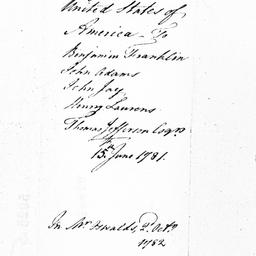 United States of
America To
Benjamin Franklin
John Adams
John Jay
Henry Laurens
Thomas Jefferson Esqrs
15th June 1781.
In Mr Oswalds, 2d Octr
1782